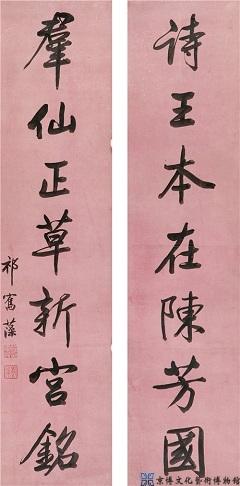 詩王本在陳芳國
羣仙正草新宮銘
祁寯藻
京博文化藝術博物館